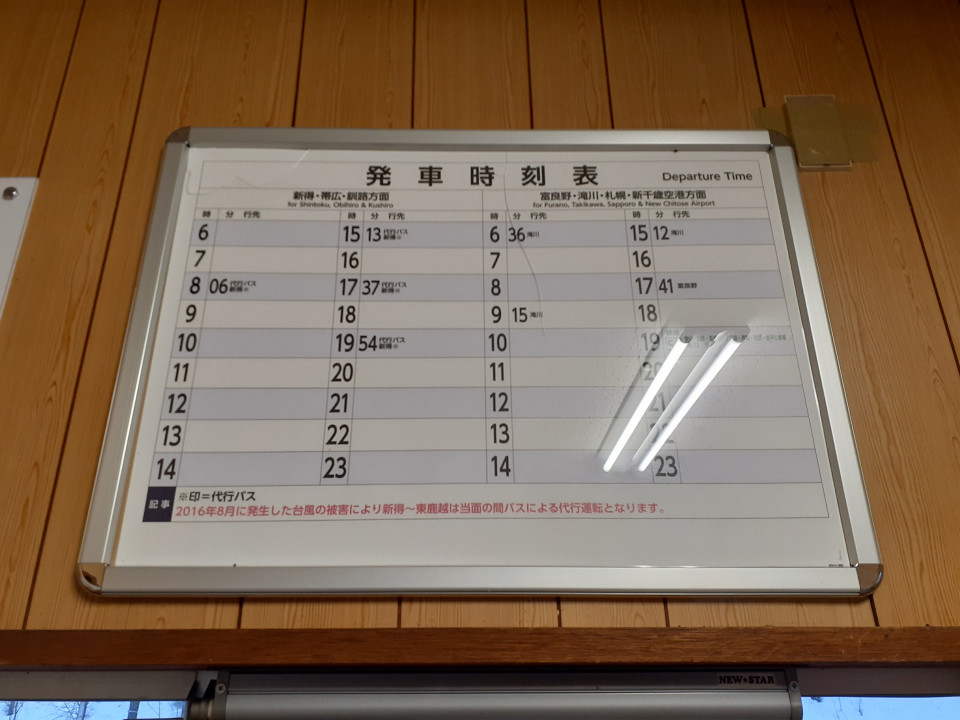 発車時刻表 Departure Time
新得・帯広・釧路方面 富良野・滝川・札幌・新千歳空港方面
for Shintoku, Obihiro & Kushiro for Furano, Takikawa, Sapporo & New Chitose Airport
時 分 行先 時 分 行先 時 分 行先 時 分 行先
6 15 13 代行バス 新得※ 6 36 滝川 15 12 滝川
7 16 7 16
8 06 代行バス 新得※ 17 37 代行バス 新得※ 8 17 41 富良野
9 18 9 15 滝川 18
10 19 54 代行バス 新得※ 10 19
11 20 11 20
12 21 12 21
13 22 13 22
14 23 14 23
記事 ※印=代行バス
2016年8月に発生した台風の被害により新得～東鹿越は当面の間バスによる代行運転となります。
NEW★STAR